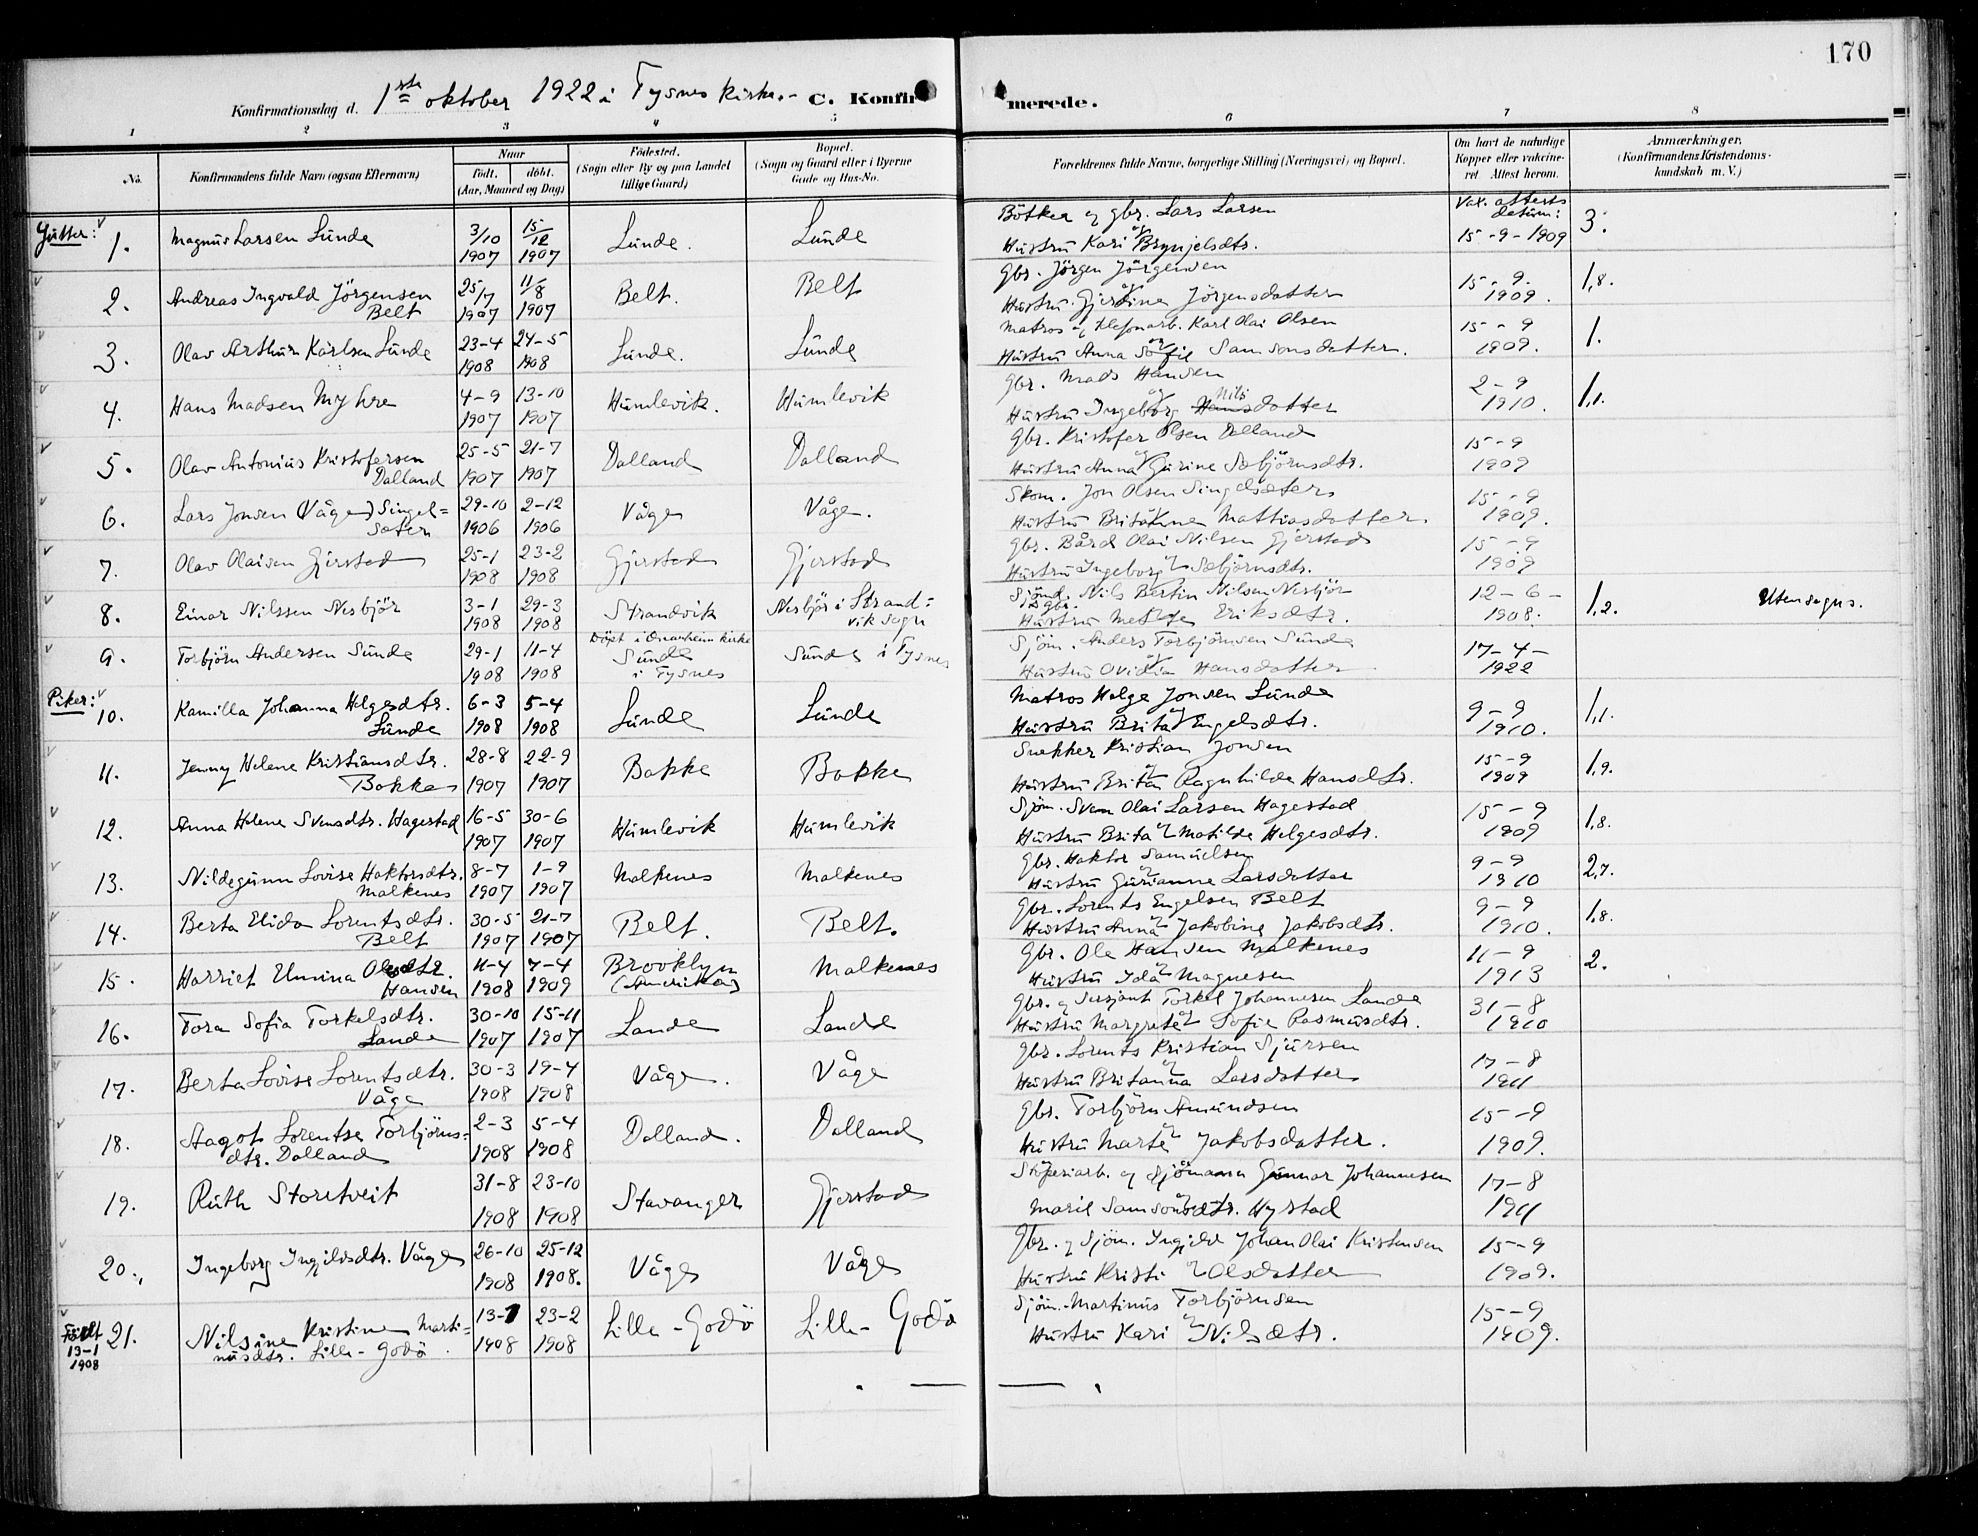 170
Konfirmationsdag d. 1ste oktober 1922 i Tysnes kirke. - C. Konfirmerede.
1 2 3 4 5 6 7 8
No. Konfirmandens fulde Navn (ogsaa Efternavn) Naar født. døbt. (Aar, Maaned og Dag) Fødested. (Sogn eller By og paa Landet tillige Gaard) Bopæl. (Sogn og Gaard eller i Byerne Gade og Hus-No. Forældrenes fulde Navne, borgerlige Stilling (Næringsvei) og Bopæl. Om havt de naturlige Kopper eller vakcineret. Attest herom. Anmærkninger. (Konfirmandens Kristendomskundskab m. V.)
Gutter: 1. Magnus Larsen Sunde 3/10 1907 15/12 1907 Sunde. Sunde Bötker og gbr. Lars Larsen og Hustru Kari Brynjelsdtr. Vax. attests datum: 15-9-1909 3.
2. Andreas Ingvald Jörgensen Belt 25/7 1907 11/8 1907 Belt. Belt Gbr. Jörgen Jörgensen og Hustru Gjerdine Jörgensdatter 15-9. 1909. 1,8.
3. Olav Arthur Karlsen Sunde 23-4 1908 24-5 1908 Sunde. Sunde Matros og Karl Olai Olsen og Hustru Anna Sofie Samsonsdatter. 15-9 1909. 1.
4. Hans Madsen Myhre 4-9 1907 13-10 1907 Humlevik. Humlevik Gbr. Mads Hansen og Hustru Ingeborg Nilsdatter 2-9 1910. 1,1.
5. Olav Antonius Kristofersen Dalland 25-5 1907 21-7 1907 Dalland Dalland Gbr. Kristofer Olsen Dalland og Hustru Anna Gurine Sæbjörnsdtr. 15-9 1909
6. Lars Jonsen (Våge) Singelsæter 29-10 1906 2-12 1906 Våge Våge. Skom. Jon Olsen Singelsæter Hustru Mattiasdatter 15-9 1909.
7. Olav Olaisen Gjerstad 25-1 1908 23-2 1908 Gjerstad Gjerstad Gbr. Bård Olai Nilsen Gjerstad Hustru Ingeborg Sæbjörnsdtr. 15-9 1909
8. Einar Nilssen Nesbjör 3-1 1908 29-3 1908 Strandvik Nesbjör i Strandvik sogn Nils Bertin Nilsen Nesbjör og Hustru Eriksdtr. 12-6-1908. 1,2. Utensogns.
9. Torbjörn Andersen Sunde 29-1 1908 11-4 1908 Döpt i Onarheim kirke Sunde i Tysnes Sunde i Tysnes Sjöm. Anders Torbjörnsen Sunde og Hustru Ovidia Hansdatter 17-4-1922
Piker: 10. Kamilla Johanna Helgesdtr. Sunde 6-3 1908 5-4 1908 Sunde Sunde Matros Helge Jonsen Sunde og Hustru Brita Engelsdtr. 9-9 1910. 1,1.
11. Jenny Helene Kristiansdtr. Bakke 28-8 1907 22-9 1907 Bakke Bakke Snekker Kristian Jonsen og Hustru Brita Ragnhilde Hansdtr. 15-9 1909 1,9.
12. Anna Helene Svensdtr. Hagestad 16-5 1907 30-6 1907 Humlevik Humlevik Sjöm. Sven Olai Larsen Hagestad og Hustru Brita Matilde Helgesdtr. 15-9 1909 1,8.
13. Nildegunn Lovise Haktorsdtr. Malkenes 8-7 1907 1-9 1907 Malkenes Malkenes Gbr. Haktor Samuelsen og Hustru Gurianne Larsdatter 9-9 1910 2,7.
14. Berta Elida Lorentsdtr. Belt 30-5 1907 21-7 1907 Belt. Belt. Gbr. Lorents Engelsen Belt og Hustru Anna Jakobine Jakobsdtr. 9-9 1910. 1,8.
15. Harriet Unnina Olesdtr. Hansen 11-4 1908 7-4 1909 Brooklyn (Amerika) Malkenes Gbr. Ole Hansen Malkenes og Hustru Ida Magnesen 11-9 1913 2.
16. Tora Sofia Torkelsdtr. Lande 30-10 1907 15-11 1907 Lande Lande Gbr. og Sersjant Torkel Johannesen Lande og Hustru Margrete Sofie Rasmusdtr. 31-8 1910
17. Berta Lovise Lorentsdtr. Våge 30-3 1908 19-4 1908 Våge. Våge Gbr. Lorents Kristian Sjursen og Hustru Britanna Larsdatter 17-8 1911
18. Aagot Lorentse Torbjörnsdtr. Dalland 2-3 1908 5-4 1908 Dalland. Dalland Gbr. Torbjörn Amundsen og Hustru Marte Jakobsdatter. 15-9 1909.
19. Ruth Storetveit 31-8 1908 23-10 1908 Stavanger Gjerstad Støperiarb. og Sjömann Gunnar Johannesen og Maril Samsonsdtr. Hystad 17-8 1911
20. Ingeborg Ingjeldsdtr. Våge 26-10 1908 25-12 1908. Våge Våge Gbr. og Sjöm. Ingjeld Johan Olai Kristensen og Hustru Kristi Olsdatter 15-9 1909.
Födt 13-1 1908 21. Nilsine Kristine Martinusdtr. Lille-Godö 13-1 1908 23-2 1908 Lille-Godö Lille-Godö Sjöm. Martinus Torbjörnsen og Hustru Kari Nilsdtr. 15-9 1909.